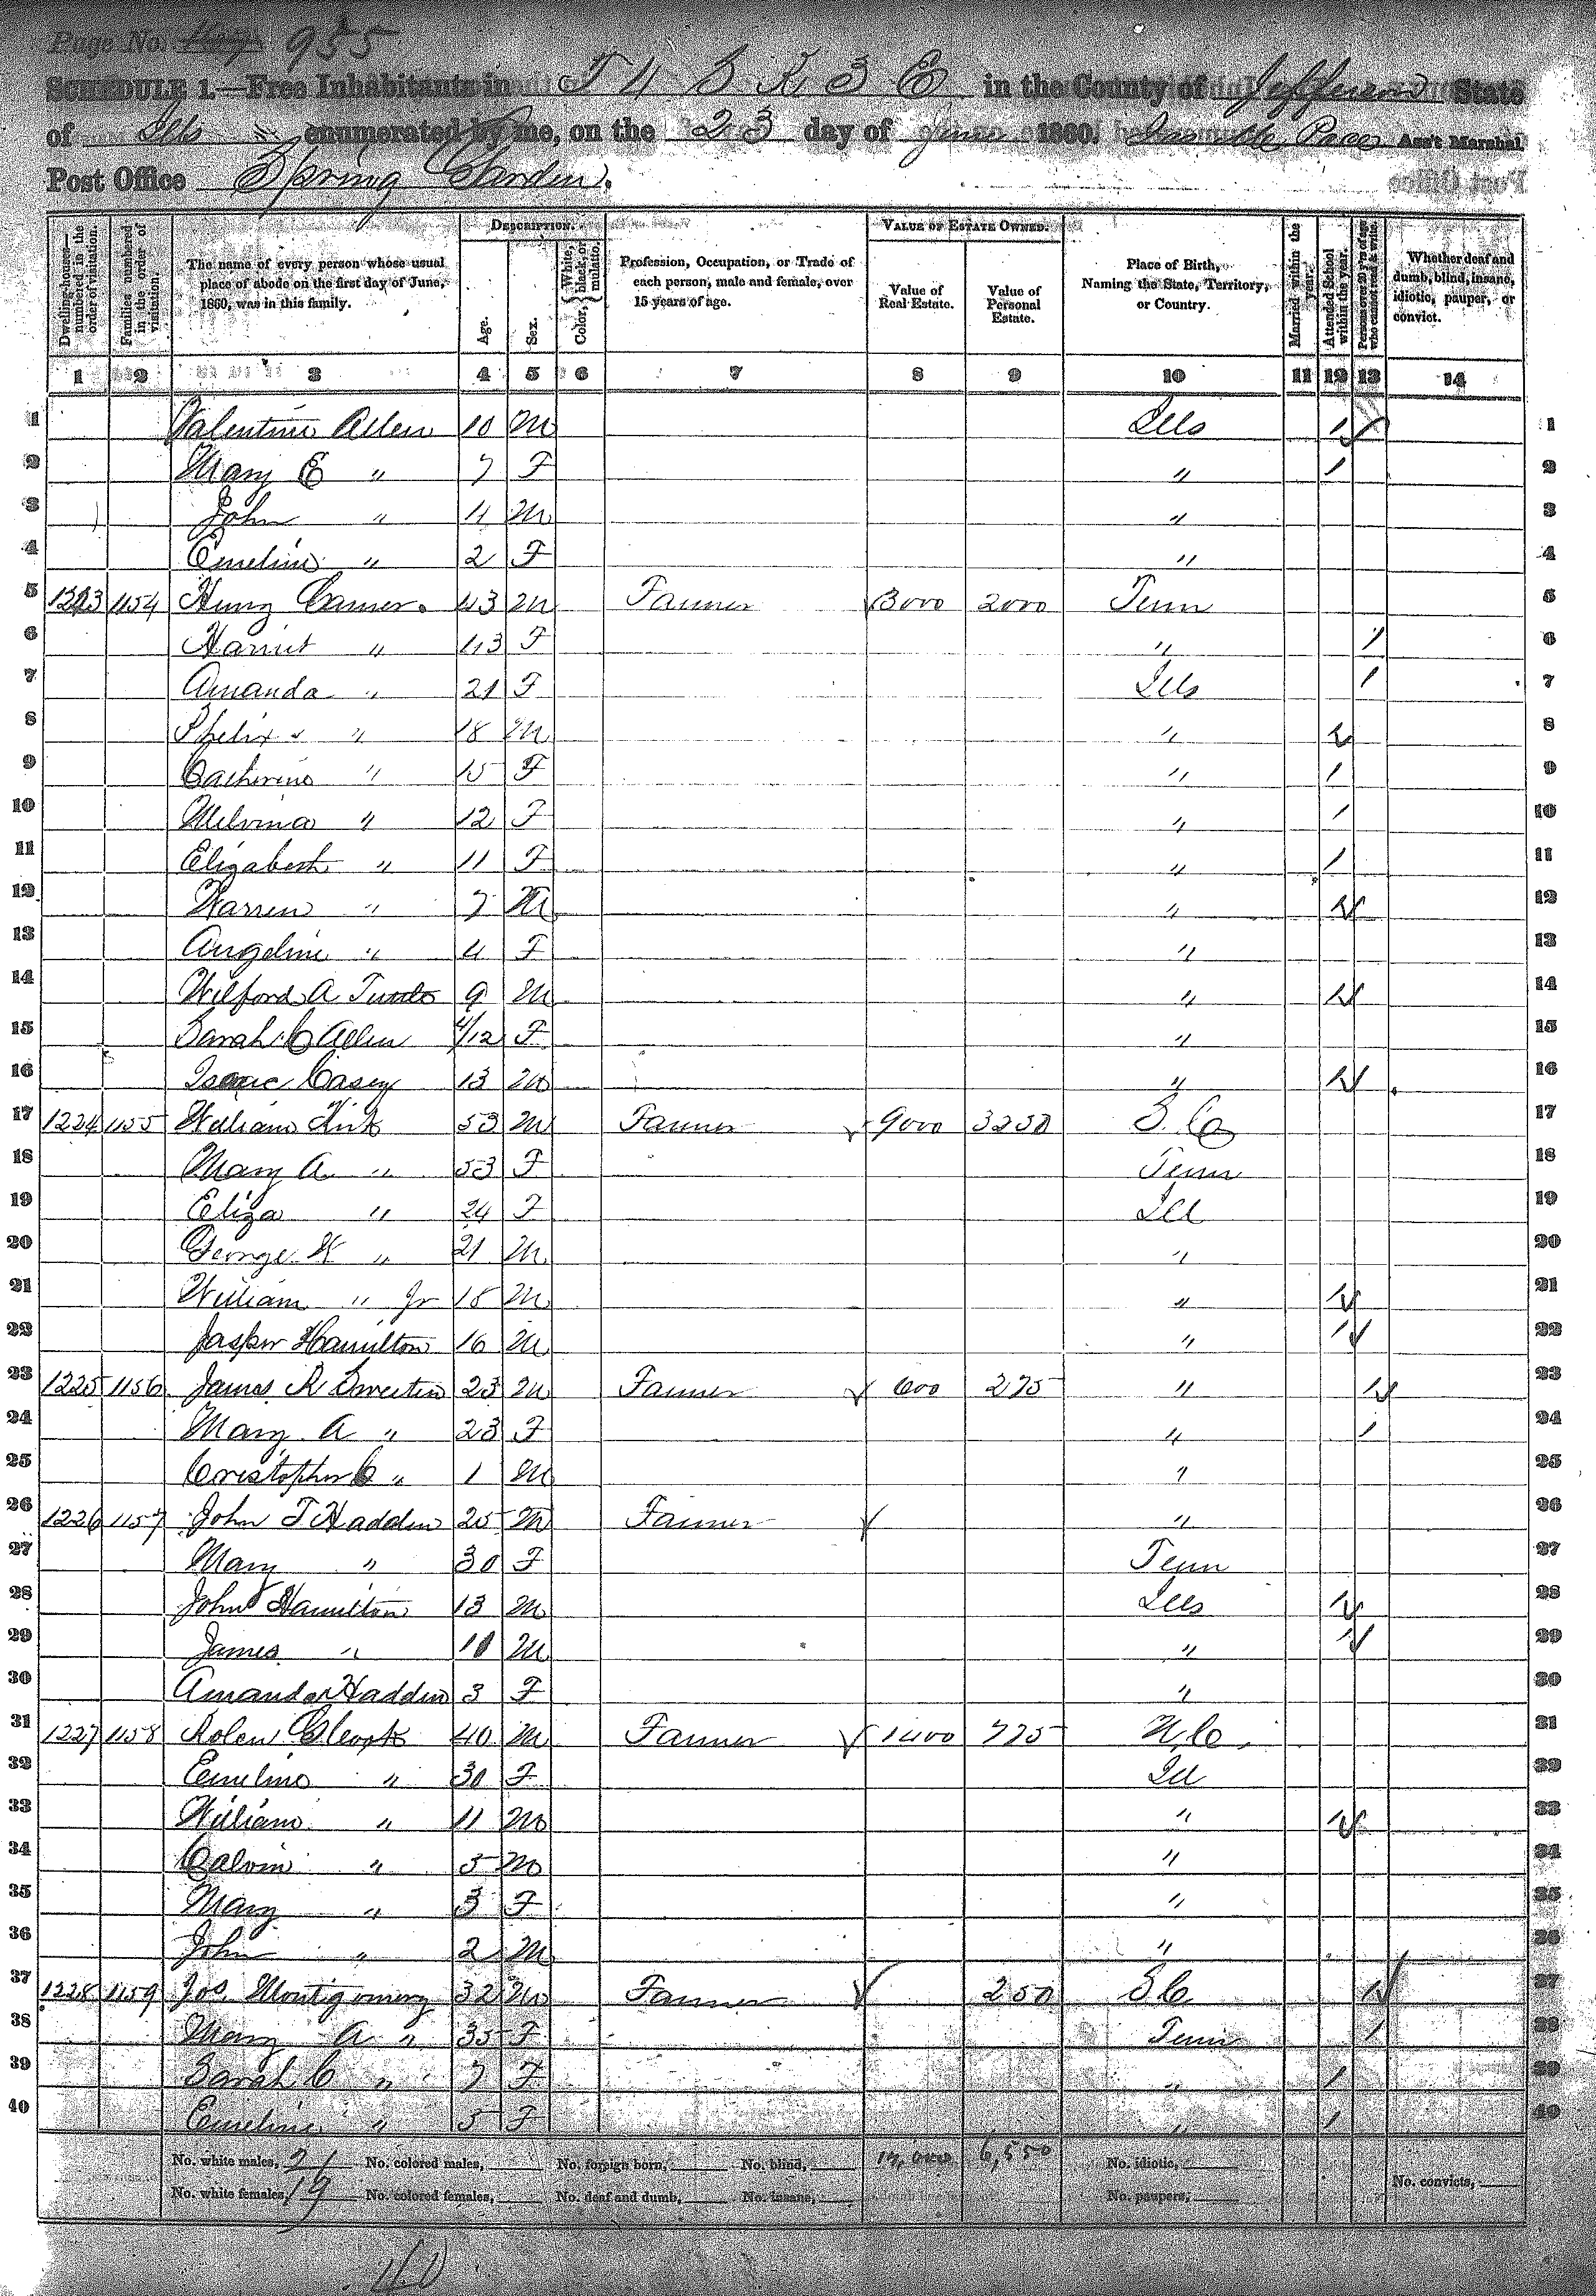 Page No. 955
SCHEDULE 1.—Free Inhabitants in T 4 S R 3 E in the County of Jefferson State
of Ills enumerated by me, on the 23 day of June 1860. Pace Ass't Marshal.
Post Office Spring Garden.
Dwelling-houses—numbered in the order of visitation.
Families numbered in the order of visitation.
The name of every person whose usual place of abode on the first day of June, 1860, was in this family.
DESCRIPTION.
Age.
Sex.
Color, White, black, or mulatto.
Profession, Occupation, or Trade of each person, male and female, over 15 years of age.
VALUE OF ESTATE OWNED.
Value of Real Estate.
Value of Personal Estate.
Place of Birth, Naming the State, Territory, or Country.
Married within the year.
Attended School within the year.
Persons over 20 y'rs of age who cannot read & write.
Whether deaf and dumb, blind, insane, idiotic, pauper, or convict.
1 2 3 4 5 6 7 8 9 10 11 12 13 14
1 Valentine Allen 10 M Ills 1 1
2 Mary E " 7 F " 1 2
3 John " 4 M " 3
4 Emeline " 2 F " 4
5 1223 1154 Henry 43 M Farmer 3000 2000 Tenn 5
6 Harriet " 43 F " 1 6
7 Amanda " 21 F Ills 1 7
8 Phelix " 18 M " 1 8
9 Catherine " 15 F " 1 9
10 Melvina " 12 F " 1 10
11 Elizabeth " 11 F " 1 11
12 Warren " 7 M " 1 12
13 Angeline " 4 F " 13
14 Wilford A 9 M " 1 14
15 Sarah C Allen 4/12 F " 15
16 Isaac Casey 13 M " 1 16
17 1224 1155 William Kirk 53 M Farmer 9000 3250 S. Ca 17
18 Mary A " 53 F Tenn 18
19 Eliza " 24 F Ill 19
20 George W " 21 M " 20
21 William " Jr 18 M " 1 21
22 Jasper Hamilton 16 M " 1 22
23 1225 1156 James R 23 M Farmer 600 275 " 1 23
24 Mary A " 23 F " 1 24
25 Cristopher C " 1 M " 25
26 1226 1157 John T Hadden 25 M Farmer " 26
27 Mary " 30 F Tenn 27
28 John Hamilton 13 M Ills 1 28
29 James " 10 M " 1 29
30 Amanda Hadden 3 F " 30
31 1227 1158 Rolen 40 M Farmer 1400 775 N C. 31
32 Emeline " 30 F Ill 32
33 William " 11 M " 1 33
34 Calvin " 5 M " 34
35 Mary " 3 F " 35
36 John " 2 M " 36
37 1228 1159 Jos. Montgomery 32 M Farmer 250 S C 1 37
38 Mary A " 35 F Tenn 1 38
39 Sarah C " 7 F " 1 39
40 Emeline " 5 F " 1 40
No. white males, 21 No. colored males, No. foreign born, No. blind, 6,550 No. idiotic,
No. white females, 19 No. colored females, No. deaf and dumb, No. insane, No. paupers, No. convicts,
40